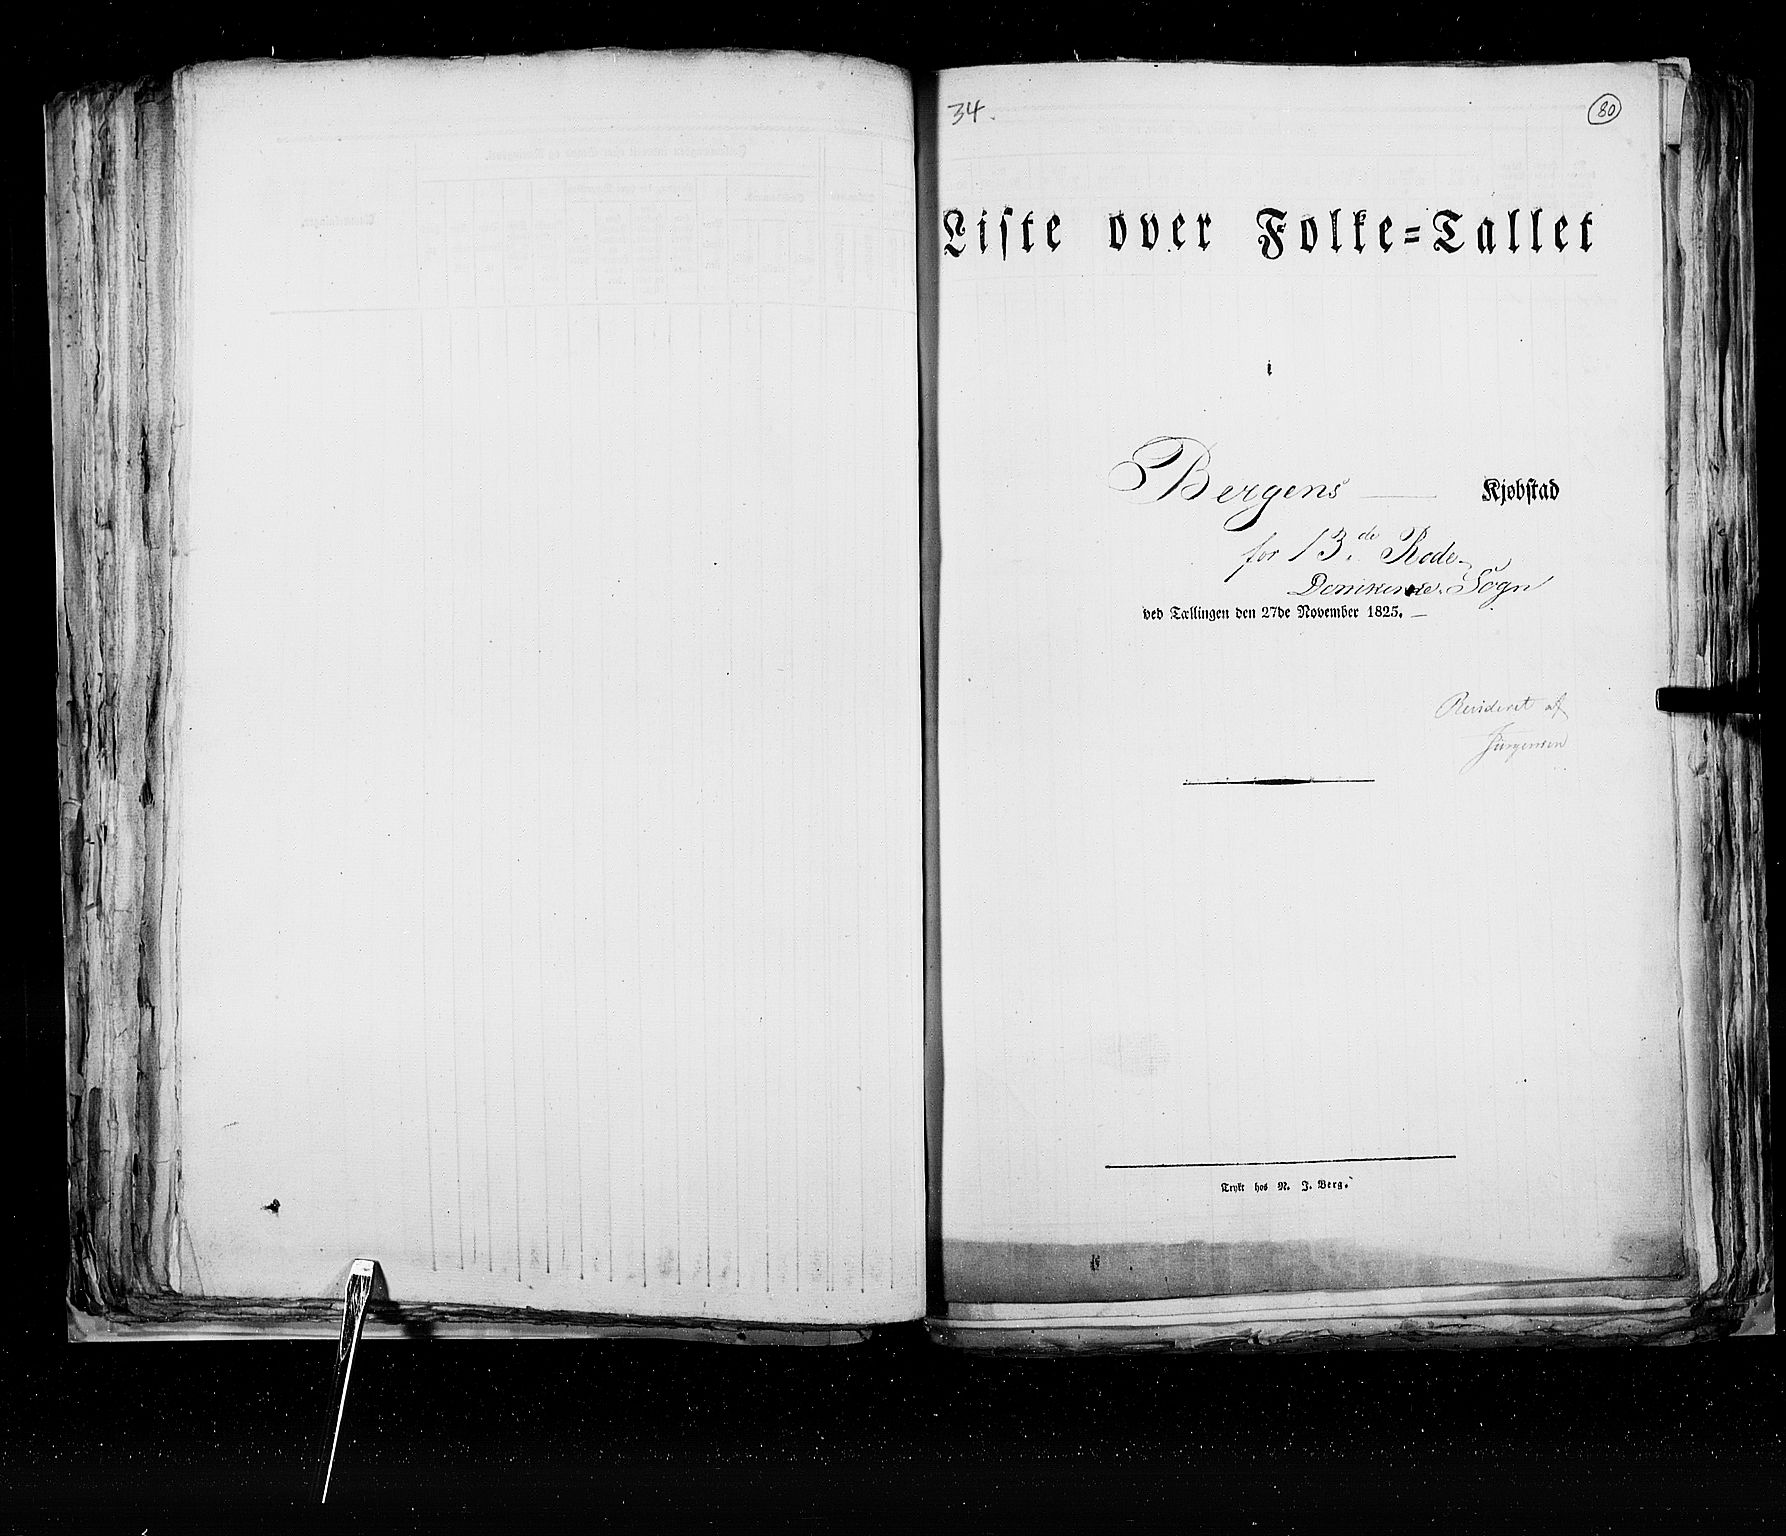 34.
80
Liste over Folke=Tallet
i
Bergens — Kjøbstad
for 13de Rode
Domkirke Sogn
ved Tællingen den 27de November 1825. —
Revideret af
Jürgensen
Trykt hos N. J. Berg.